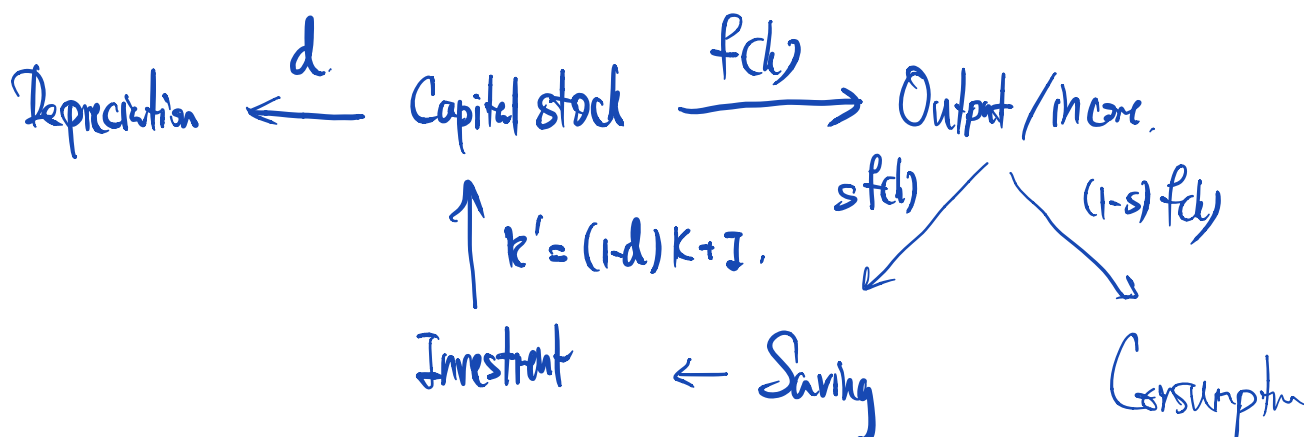 d. f(k)
Depreciation ← Capital stock → Output / income.
s f(k) (1-s) f(k)
k' = (1-d) K + I.
Investment ← Saving Consumption